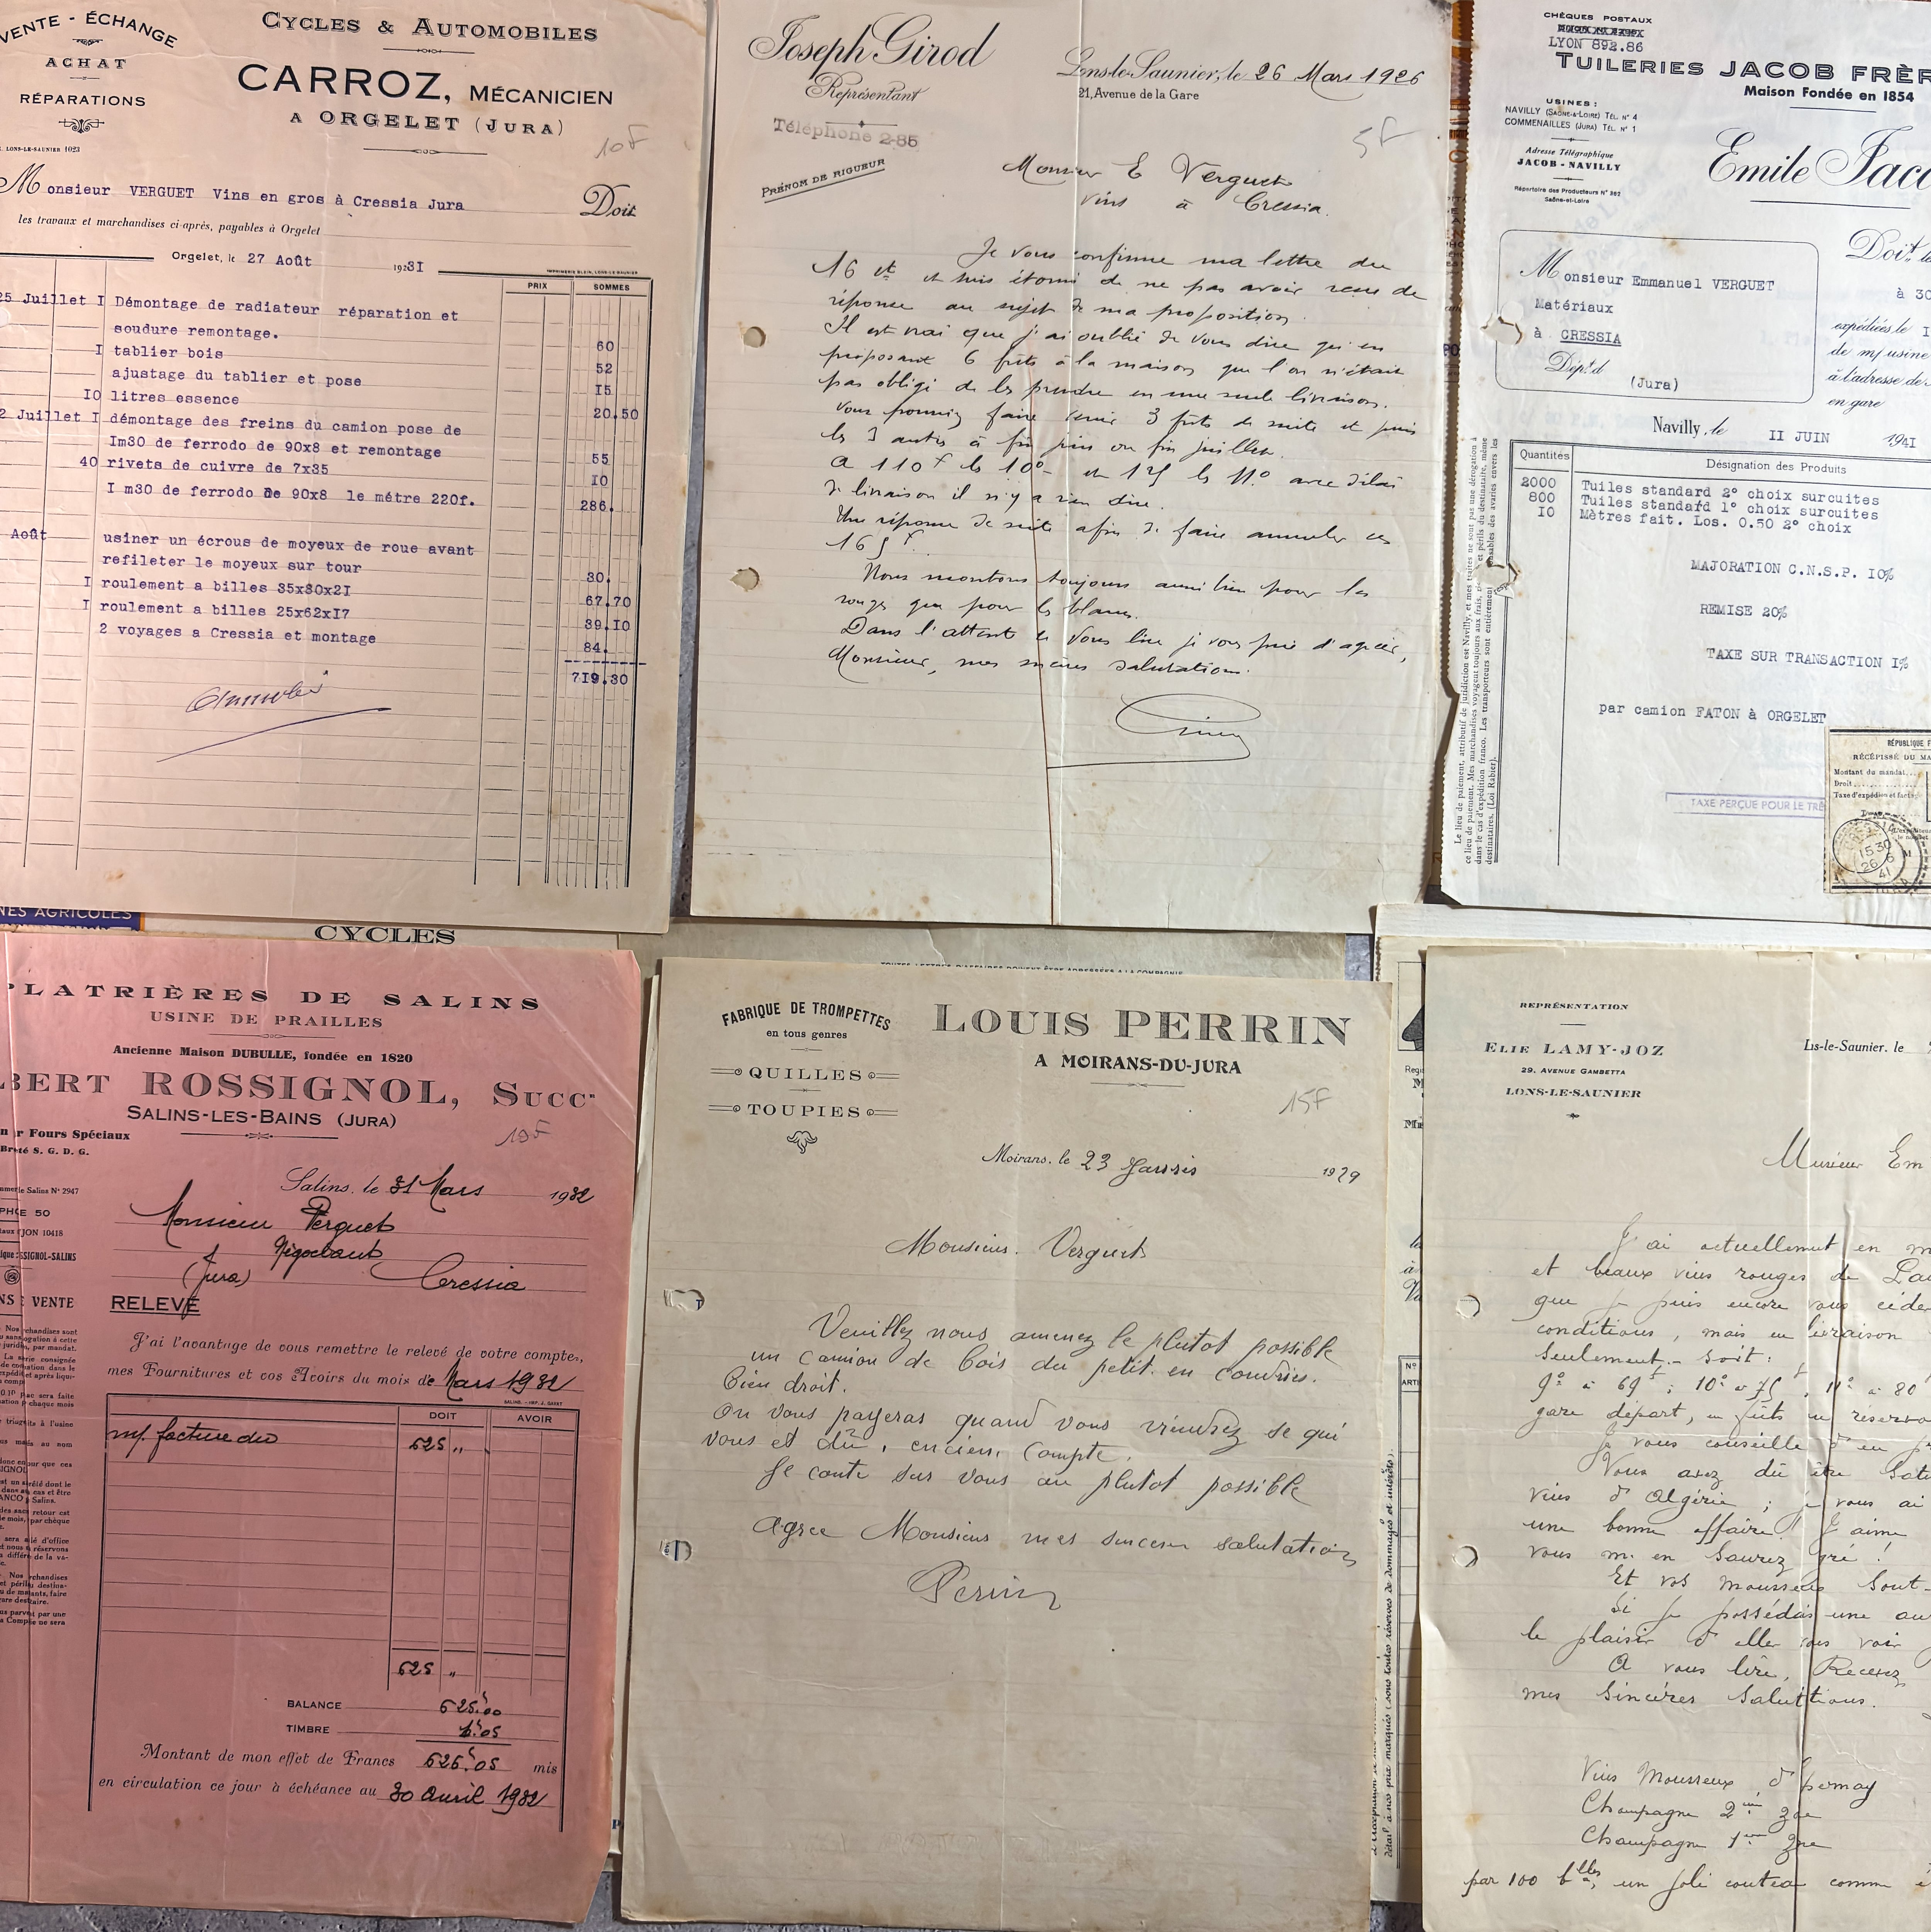 VENTE - ÉCHANGE
ACHAT
RÉPARATIONS
LONS-LE-SAUNIER 1023
CYCLES & AUTOMOBILES
CARROZ, MÉCANICIEN
A ORGELET (JURA)
10F
Monsieur VERGUET Vins en gros à Cressia Jura
Doit
les travaux et marchandises ci-après, payables à Orgelet
Orgelet, le 27 Août 19231
IMPRIMERIE BLEIN, LONS-LE-SAUNIER
PRIX SOMMES
25 Juillet I Démontage de radiateur réparation et
soudure remontage. 60
I tablier bois 52
ajustage du tablier et pose 15
10 litres essence 20.50
2 Juillet I démontage des freins du camion pose de
Im30 de ferrodo de 90x8 et remontage 55
40 rivets de cuivre de 7x35 10
I m30 de ferrodo de 90x8 le métre 220f. 286.
Août usiner un écrous de moyeux de roue avant
refileter le moyeux sur tour 30.
I roulement a billes 35x80x21 67.70
I roulement a billes 25x62x17 39.10
2 voyages a Cressia et montage 84.
719.30
Joseph Girod
Représentant
Téléphone 2-85
PRÉNOM DE RIGUEUR
Lons-le-Saunier, le 26 Mars 1926
21, Avenue de la Gare
5F
Monsieur E Verguet
Vins à Cressia.
Je vous confirme ma lettre du
16 ct et suis étonné de ne pas avoir reçu de
réponse au sujet de ma proposition.
Il est vrai que j'ai oublié de vous dire qu'en
proposant 6 fûts à la maison que l'on n'était
pas obligé de les prendre en une seule livraison.
Vous pourriez faire venir 3 fûts de suite et puis
les 3 autres à fin juin ou fin juillet.
A 110f le 10° et 125 le 11° avec délai
de livraison il n'y a rien dire.
Une réponse de suite afin de faire annuler ces
165f.
Nous montons toujours aussi bien pour les
rouges que pour les blancs.
Dans l'attente de vous lire je vous prie d'agréer,
Monsieur, mes sincères salutations.
CHÈQUES POSTAUX
LYON 892.86
TUILERIES JACOB FRÈR
Maison Fondée en 1854
USINES :
NAVILLY (SAÔNE-&-LOIRE) TÉL. N° 4
COMMENAILLES (JURA) TÉL. N° 1
Adresse Télégraphique
JACOB - NAVILLY
Répertoire des Producteurs N° 362
Saône-et-Loire
Emile Jaco
Doit
Monsieur Emmanuel VERGUET
Matériaux
à CRESSIA
Dép.t d
(Jura)
à 30
expédiées le I
de m/usine
à l'adresse de
en gare
Navilly, le II JUIN 1941
Quantités Désignation des Produits
2000 Tuiles standard 2° choix surcuites
800 Tuiles standard 1° choix surcuites
10 Mètres fait. Los. 0.50 2° choix
MAJORATION C.N.S.P. 10%
REMISE 20%
TAXE SUR TRANSACTION 1%
par camion FATON à ORGELET
TAXE PERÇUE POUR LE TRÉ
RÉPUBLIQUE F
RÉCÉPISSÉ DU MA
Montant du mandat
Droit
Taxe d'expédition et factag
1530
26 6
41
NES AGRICOLES
CYCLES
PLATRIÈRES DE SALINS
USINE DE PRAILLES
Ancienne Maison DUBULLE, fondée en 1820
BERT ROSSIGNOL, SUCCR
SALINS-LES-BAINS (JURA)
Fours Spéciaux
Breté S. G. D. G.
10F
Salins, le 31 Mars 1932
Monsieur Verguet
Négociant
(Jura) Cressia
RELEVÉ
J'ai l'avantage de vous remettre le relevé de votre compte,
mes Fournitures et vos Avoirs du mois de Mars 1932
SALINS. - IMP. J. GAVET
DOIT AVOIR
m/ facture du 625 "
625 "
BALANCE 625.00
TIMBRE 1.05
Montant de mon effet de Francs 626.05 mis
en circulation ce jour à échéance au 30 avril 1932
TOUTES LETTRES D'AFFAIRES DOIVENT ÊTRE ADRESSÉES A LA COMPAGNIE
FABRIQUE DE TROMPETTES
en tous genres
QUILLES
TOUPIES
LOUIS PERRIN
A MOIRANS-DU-JURA
15F
Moirans, le 23 Janvier 1929
Monsieur Verguet
Veuillez nous amenez le plutot possible
un camion de bois du petit en coudries.
bien droit.
On vous payeras quand vous viendrez se qui
vous et dû, encien compte.
Je conte sur vous au plutot possible
Agree Monsieur mes sincere salutations
Perrin
REPRÉSENTATION
ELIE LAMY-JOZ
29, AVENUE GAMBETTA
LONS-LE-SAUNIER
Ls-le-Saunier, le
Monsieur Em
J'ai actuellement en m
et beaux vins rouges de
que je puis encore vous céder
conditions, mais en livraison
seulement - soit :
9° à 69f ; 10° à 75f, 11° à 80
gare départ, en fûts ou réservo
Je vous conseille d'en p
Vous avez dû être sati
vins d'Algérie ; je vous ai
une bonne affaire ! J'aime
vous m'en saurez gré !
Et vos mousseux sont
Si je possédais une au
le plaisir d'aller vous voir
A vous lire, Recevez
mes sincères salutations.
Vins Mousseux d'Epernay
Champagne 2ème zone
Champagne 1ère zone
par 100 blles, un joli couteau comme